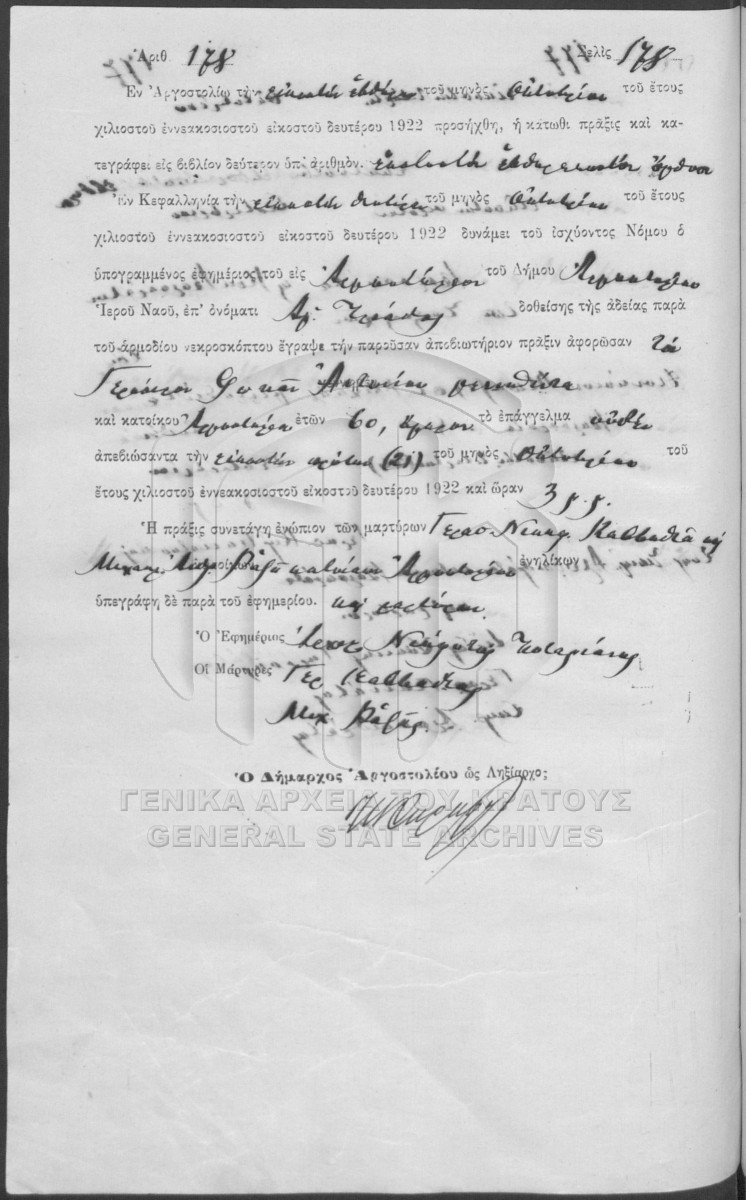 Ἀριθ. 178 Σελὶς 178
Ἐν Ἀργοστολίῳ τὴν εἰκοστὴν ἑβδόμην τοῦ μηνὸς Ὀκτωβρίου τοῦ ἔτους
χιλιοστοῦ ἐννεακοσιοστοῦ εἰκοστοῦ δευτέρου 1922 προσήχθη, ἡ κάτωθι πρᾶξις καὶ κα-
τεγράφει εἰς βιβλίον δεύτερον ὑπ' ἀριθμὸν. ἑκατοστὸν ἑβδομηκοστὸν ὄγδοον
Ἐν Κεφαλληνίᾳ τὴν εἰκοστὴν δευτέραν τοῦ μηνὸς Ὀκτωβρίου τοῦ ἔτους
χιλιοστοῦ ἐννεακοσιοστοῦ εἰκοστοῦ δευτέρου 1922 δυνάμει τοῦ ἰσχύοντος Νόμου ὁ
ὑπογραμμένος ἐφημέριος τοῦ εἰς Ἀργοστόλιον τοῦ Δήμου Ἀργοστολίου
Ἱεροῦ Ναοῦ, ἐπ' ὀνόματι Ἁγ. Τριάδος δοθείσης τῆς ἀδείας παρὰ
τοῦ ἁρμοδίου νεκροσκόπτου ἔγραψε τὴν παροῦσαν ἀποβιωτήριον πρᾶξιν ἀφορῶσαν τὸν
Γεράσιμον Φωκᾶν Ἀντωνίου γεννηθέντα
καὶ κατοίκου Ἀργοστολίου ἐτῶν 60, ἄγαμον τὸ ἐπάγγελμα
ἀπεβιώσαντα τὴν εἰκοστὴν πρώτην (21) τοῦ μηνὸς Ὀκτωβρίου τοῦ
ἔτους χιλιοστοῦ ἐννεακοσιοστοῦ εἰκοστοῦ δευτέρου 1922 καὶ ὥραν 3
Ἡ πρᾶξις συνετάγη ἐνώπιον τῶν μαρτύρων Γερασ. Καββαδία καὶ
Ἀργοστολίου ἐνηλίκων
ὑπεγράφη δὲ παρὰ τοῦ ἐφημερίου. καὶ μαρτύρων
Ὁ Ἐφημέριος
Οἱ Μάρτυρες Γερ Καββαδίας
Μιχ.
Ὁ Δήμαρχος Ἀργοστολίου ὡς Ληξίαρχος
ΓΕΝΙΚΑ ΑΡΧΕΙΑ ΤΟΥ ΚΡΑΤΟΥΣ
GENERAL STATE ARCHIVES